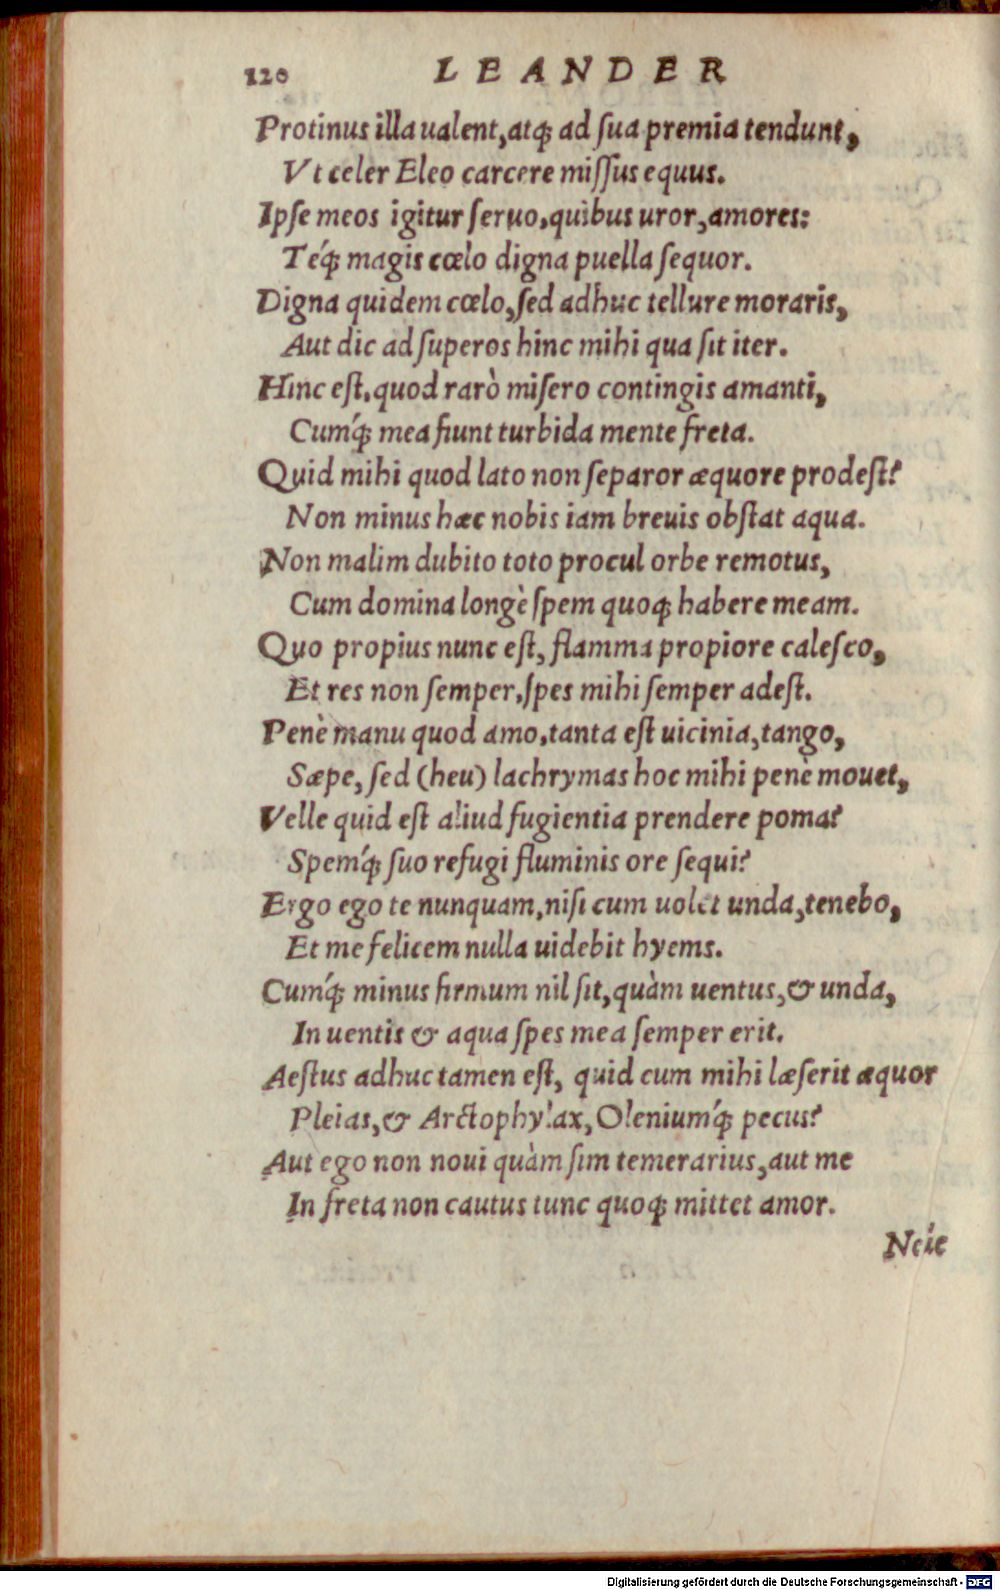 120 LEANDER
Protinus illa ualent, atq; ad ſua premia tendunt,
Vt celer Eleo carcere miſſus equus.
Ipſe meos igitur ſeruo, quibus uror, amores:
Téq; magis cœlo digna puella ſequor.
Digna quidem cœlo, ſed adhuc tellure moraris,
Aut dic ad ſuperos hinc mihi qua ſit iter.
Hinc eſt, quod rarò miſero contingis amanti,
Cumq́; mea fiunt turbida mente freta.
Quid mihi quod lato non ſeparor æquore prodeſt?
Non minus hæc nobis iam breuis obſtat aqua.
Non malim dubito toto procul orbe remotus,
Cum domina longè ſpem quoq; habere meam.
Quo propius nunc eſt, flamma propiore caleſco,
Et res non ſemper, ſpes mihi ſemper adeſt.
Penè manu quod amo, tanta eſt uicinia, tango,
Sæpe, ſed (heu) lachrymas hoc mihi penè mouet,
Velle quid eſt aliud fugientia prendere poma?
Spemq́; ſuo refugi fluminis ore ſequi?
Ergo ego te nunquam, niſi cum uolet unda, tenebo,
Et me felicem nulla uidebit hyems.
Cumq́; minus firmum nil ſit, quàm uentus, & unda,
In uentis & aqua ſpes mea ſemper erit.
Aeſtus adhuc tamen eſt, quid cum mihi læſerit æquor
Pleias, & Arctophylax, Oleniumq́; pecus?
Aut ego non noui quàm ſim temerarius, aut me
In freta non cautus tunc quoq; mittet amor.
Néie
Digitalisierung gefördert durch die Deutsche Forschungsgemeinschaft - DFG